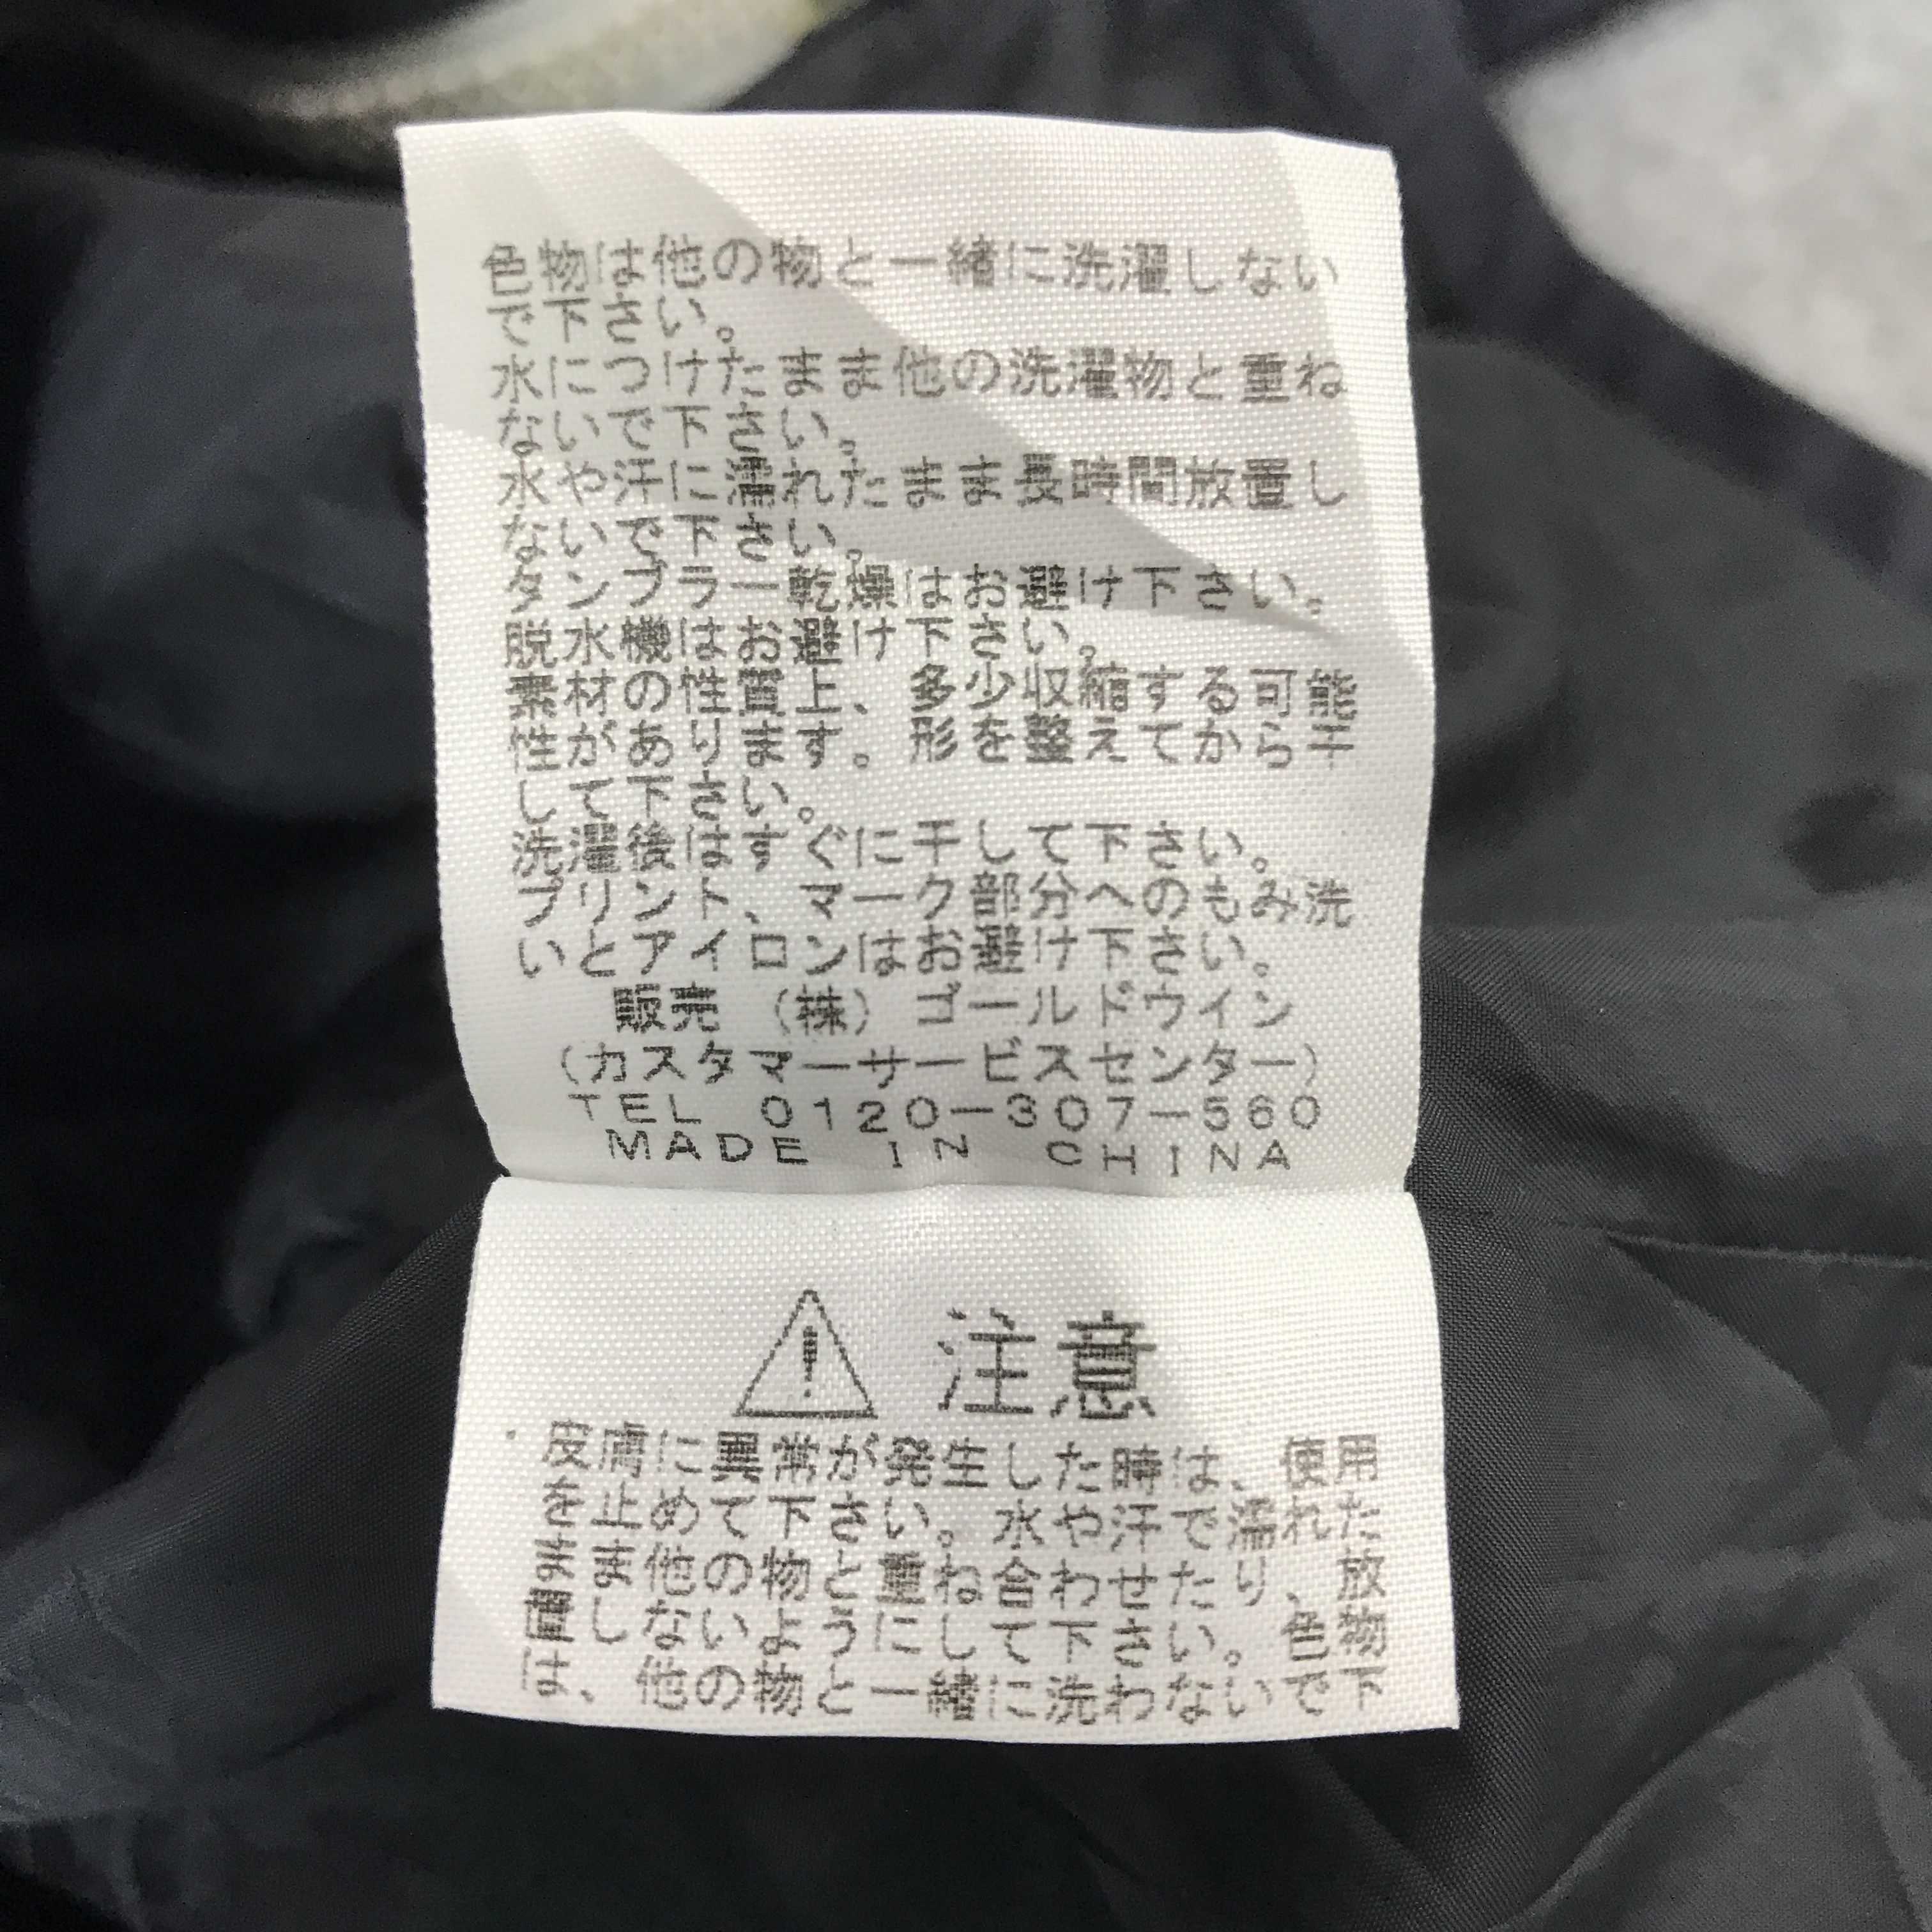 色物は他の物と一緒に洗濯しない
で下さい。
水につけたまま他の洗濯物と重ね
ないで下さい。
水や汗に濡れたまま長時間放置し
ないで下さい。
タンブラー乾燥はお避け下さい。
脱水機はお避け下さい。
素材の性質上、多少収縮する可能
性があります。形を整えてから干
して下さい。
洗濯後はすぐに干して下さい。
プリント、マーク部分へのもみ洗
いとアイロンはお避け下さい。
販売 (株)ゴールドウイン
(カスタマーサービスセンター)
TEL 0120-307-560
MADE IN CHINA
注意
皮膚に異常が発生した時は、使用
を止めて下さい。水や汗で濡れた
まま他の物と重ね合わせたり、放
置しないようにして下さい。色物
は、他の物と一緒に洗わないで下